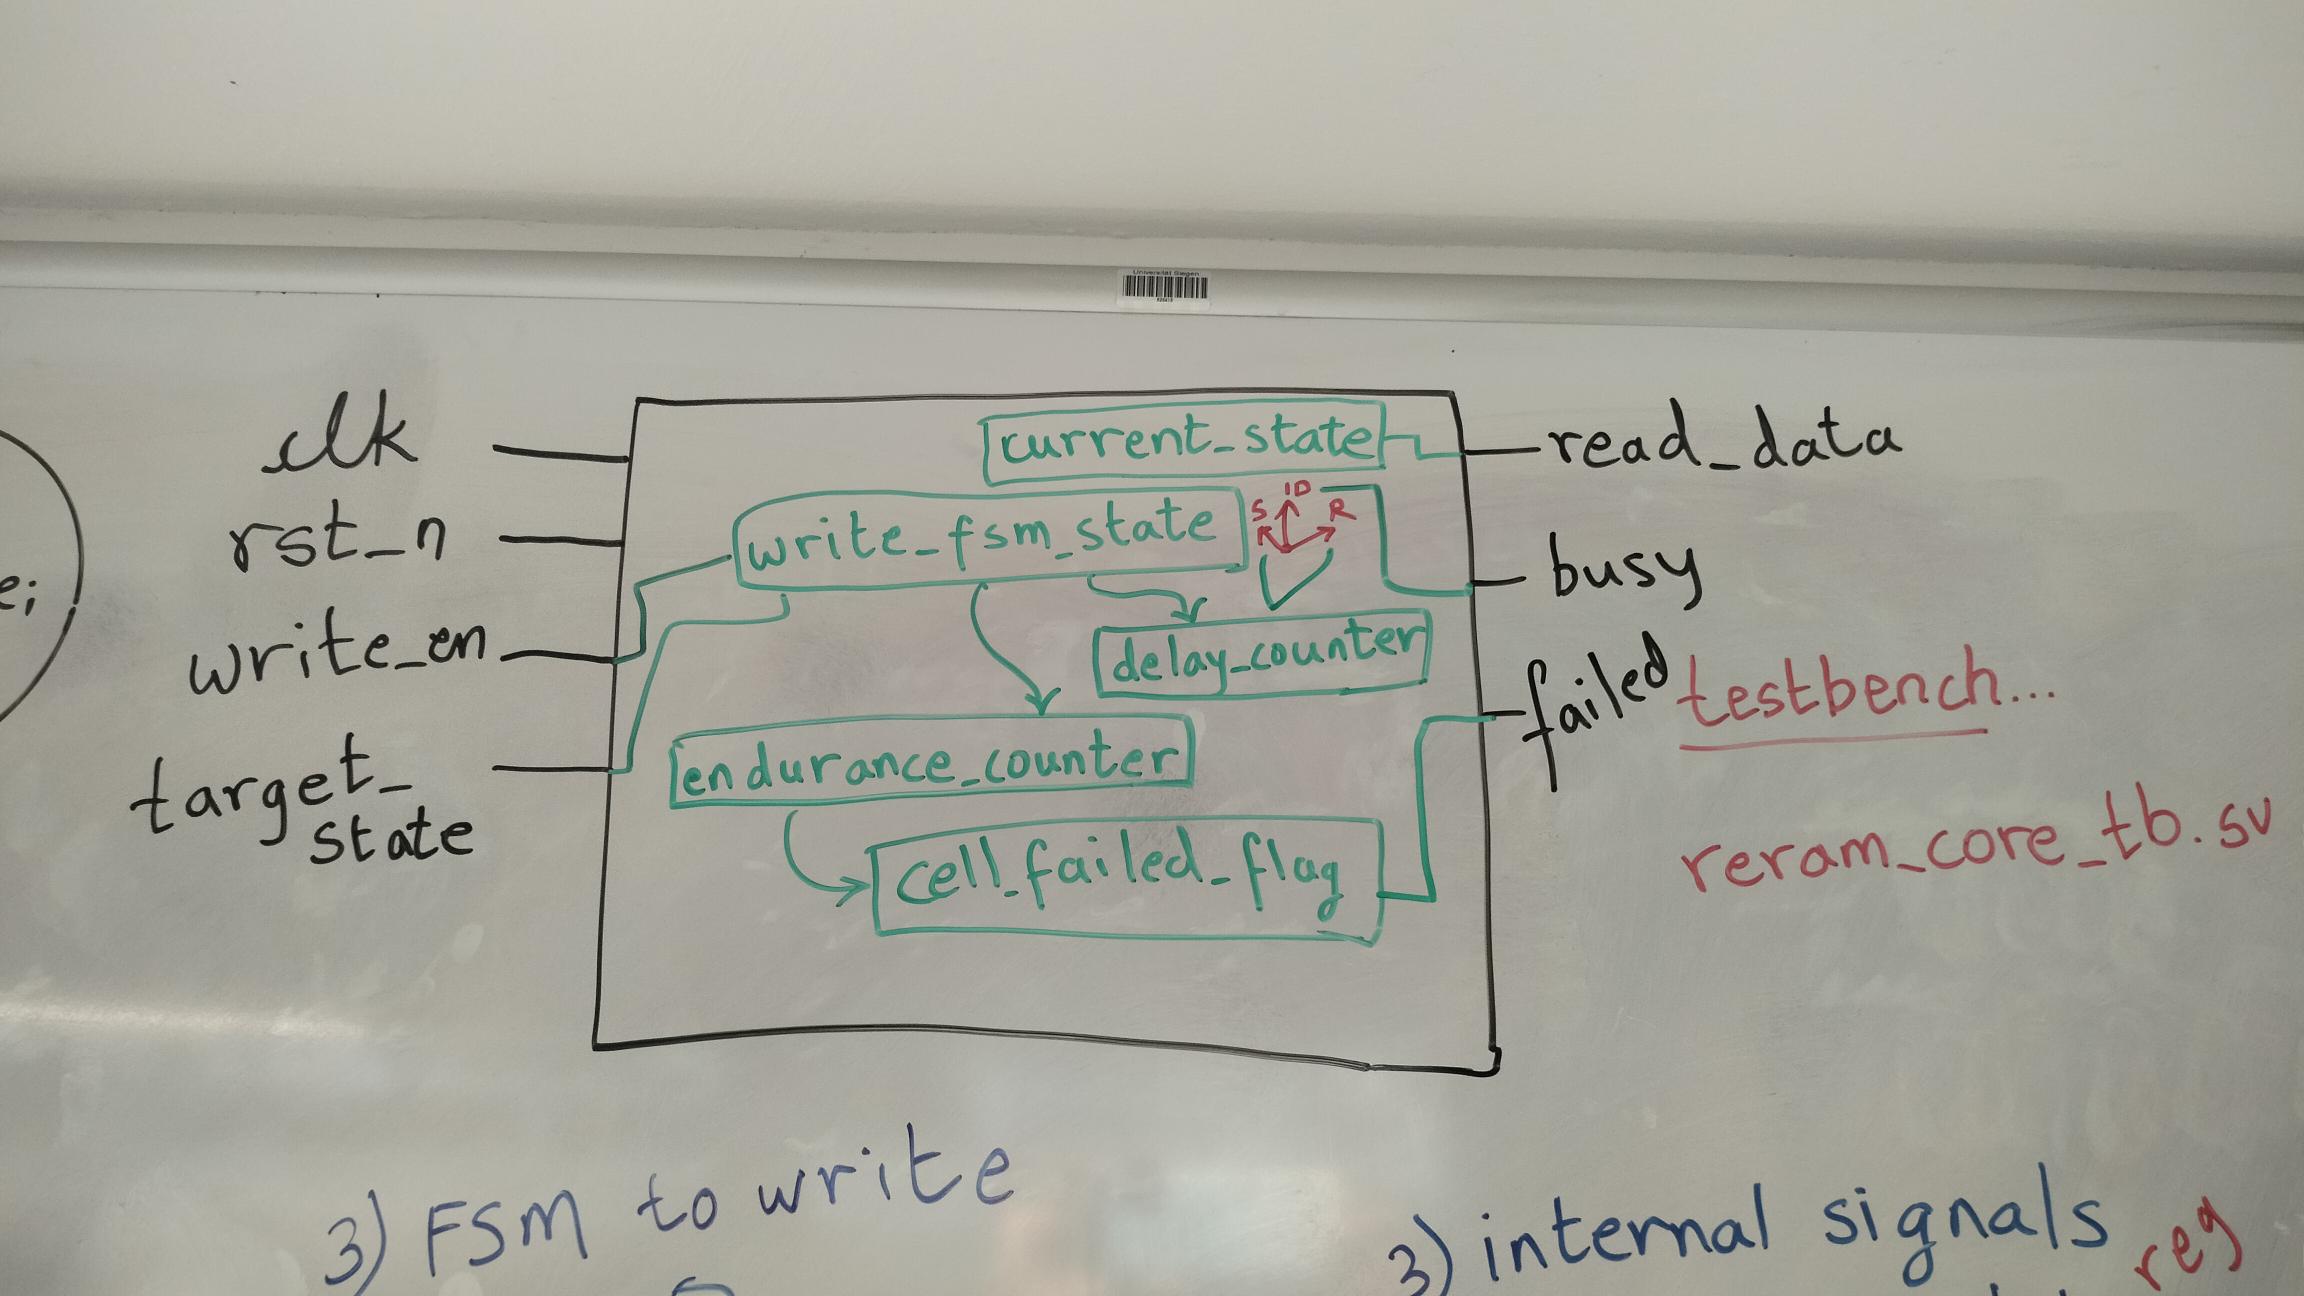 Universität Siegen
clk
rst_n
write_en
target_
state
e;
current_state
write_fsm_state
S ID R
delay_counter
endurance_counter
cell_failed_flag
read_data
busy
failed
testbench...
reram_core_tb.sv
3) FSM to write
3) internal signals
reg